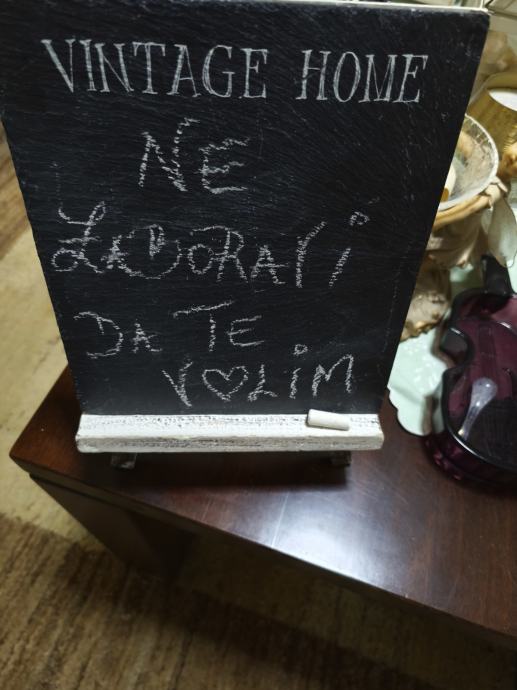 VINTAGE HOME
NE
ZABORAVi
DA TE
V♡LiM